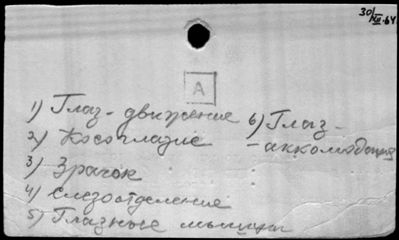 30/XII.64
А
1) Глаз - движение
2) Косоглазие
3) Зрачок
4) Слезоотделение
5) Глазные мышцы
6) Глаз -
- аккомодация